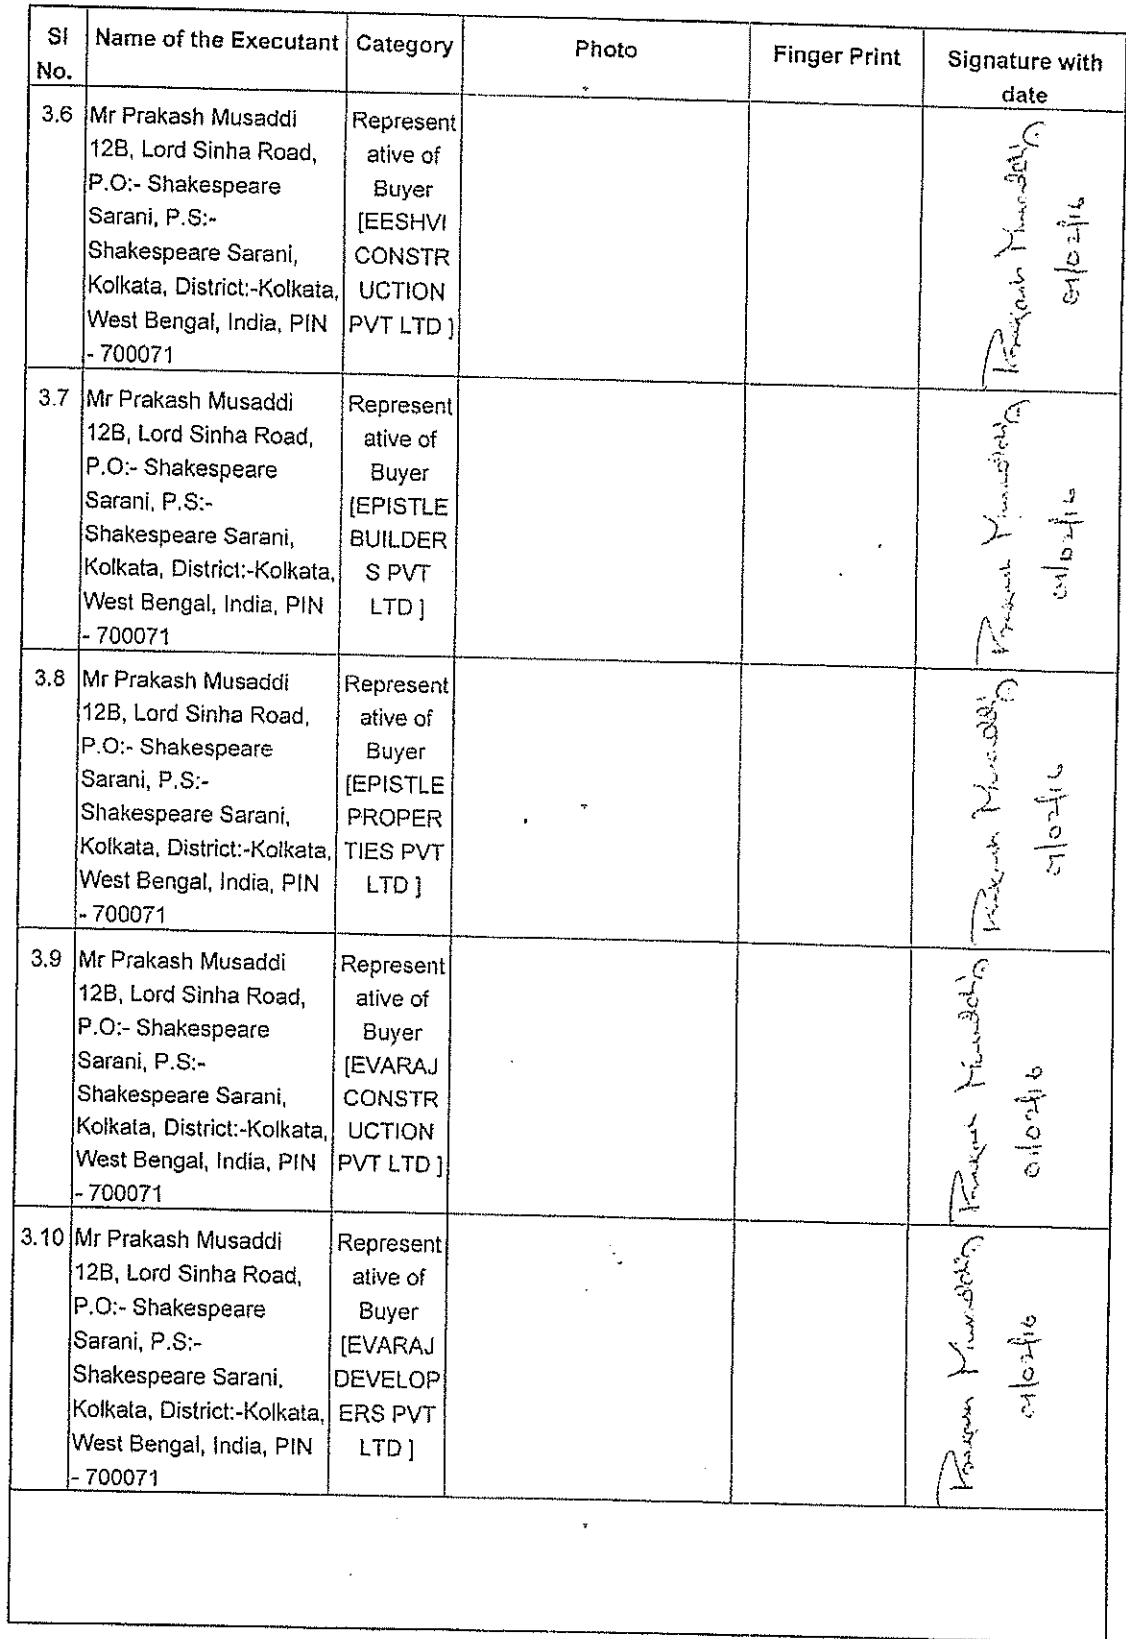 Sl No.
Name of the Executant
Category
Photo
Finger Print
Signature with date
3.6
Mr Prakash Musaddi
12B, Lord Sinha Road,
P.O:- Shakespeare
Sarani, P.S:-
Shakespeare Sarani,
Kolkata, District:-Kolkata,
West Bengal, India, PIN
- 700071
Represent
ative of
Buyer
[EESHVI
CONSTR
UCTION
PVT LTD ]
Prakash Musaddi
01/02/16
3.7
Mr Prakash Musaddi
12B, Lord Sinha Road,
P.O:- Shakespeare
Sarani, P.S:-
Shakespeare Sarani,
Kolkata, District:-Kolkata,
West Bengal, India, PIN
- 700071
Represent
ative of
Buyer
[EPISTLE
BUILDER
S PVT
LTD ]
Prakash Musaddi
01/02/16
3.8
Mr Prakash Musaddi
12B, Lord Sinha Road,
P.O:- Shakespeare
Sarani, P.S:-
Shakespeare Sarani,
Kolkata, District:-Kolkata,
West Bengal, India, PIN
- 700071
Represent
ative of
Buyer
[EPISTLE
PROPER
TIES PVT
LTD ]
Prakash Musaddi
01/02/16
3.9
Mr Prakash Musaddi
12B, Lord Sinha Road,
P.O:- Shakespeare
Sarani, P.S:-
Shakespeare Sarani,
Kolkata, District:-Kolkata,
West Bengal, India, PIN
- 700071
Represent
ative of
Buyer
[EVARAJ
CONSTR
UCTION
PVT LTD ]
Prakash Musaddi
01/02/16
3.10
Mr Prakash Musaddi
12B, Lord Sinha Road,
P.O:- Shakespeare
Sarani, P.S:-
Shakespeare Sarani,
Kolkata, District:-Kolkata,
West Bengal, India, PIN
- 700071
Represent
ative of
Buyer
[EVARAJ
DEVELOP
ERS PVT
LTD ]
Prakash Musaddi
01/02/16